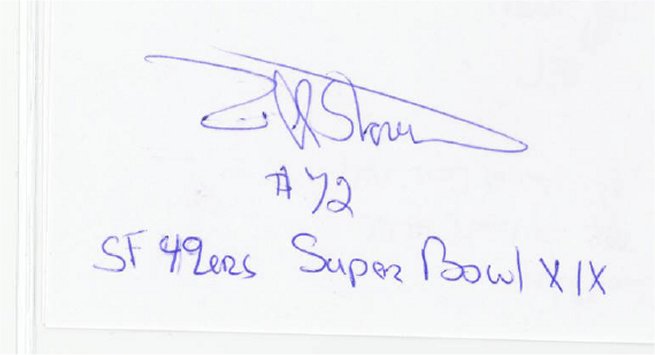 Jeff Stover
#72
SF 49ers Super Bowl XIX